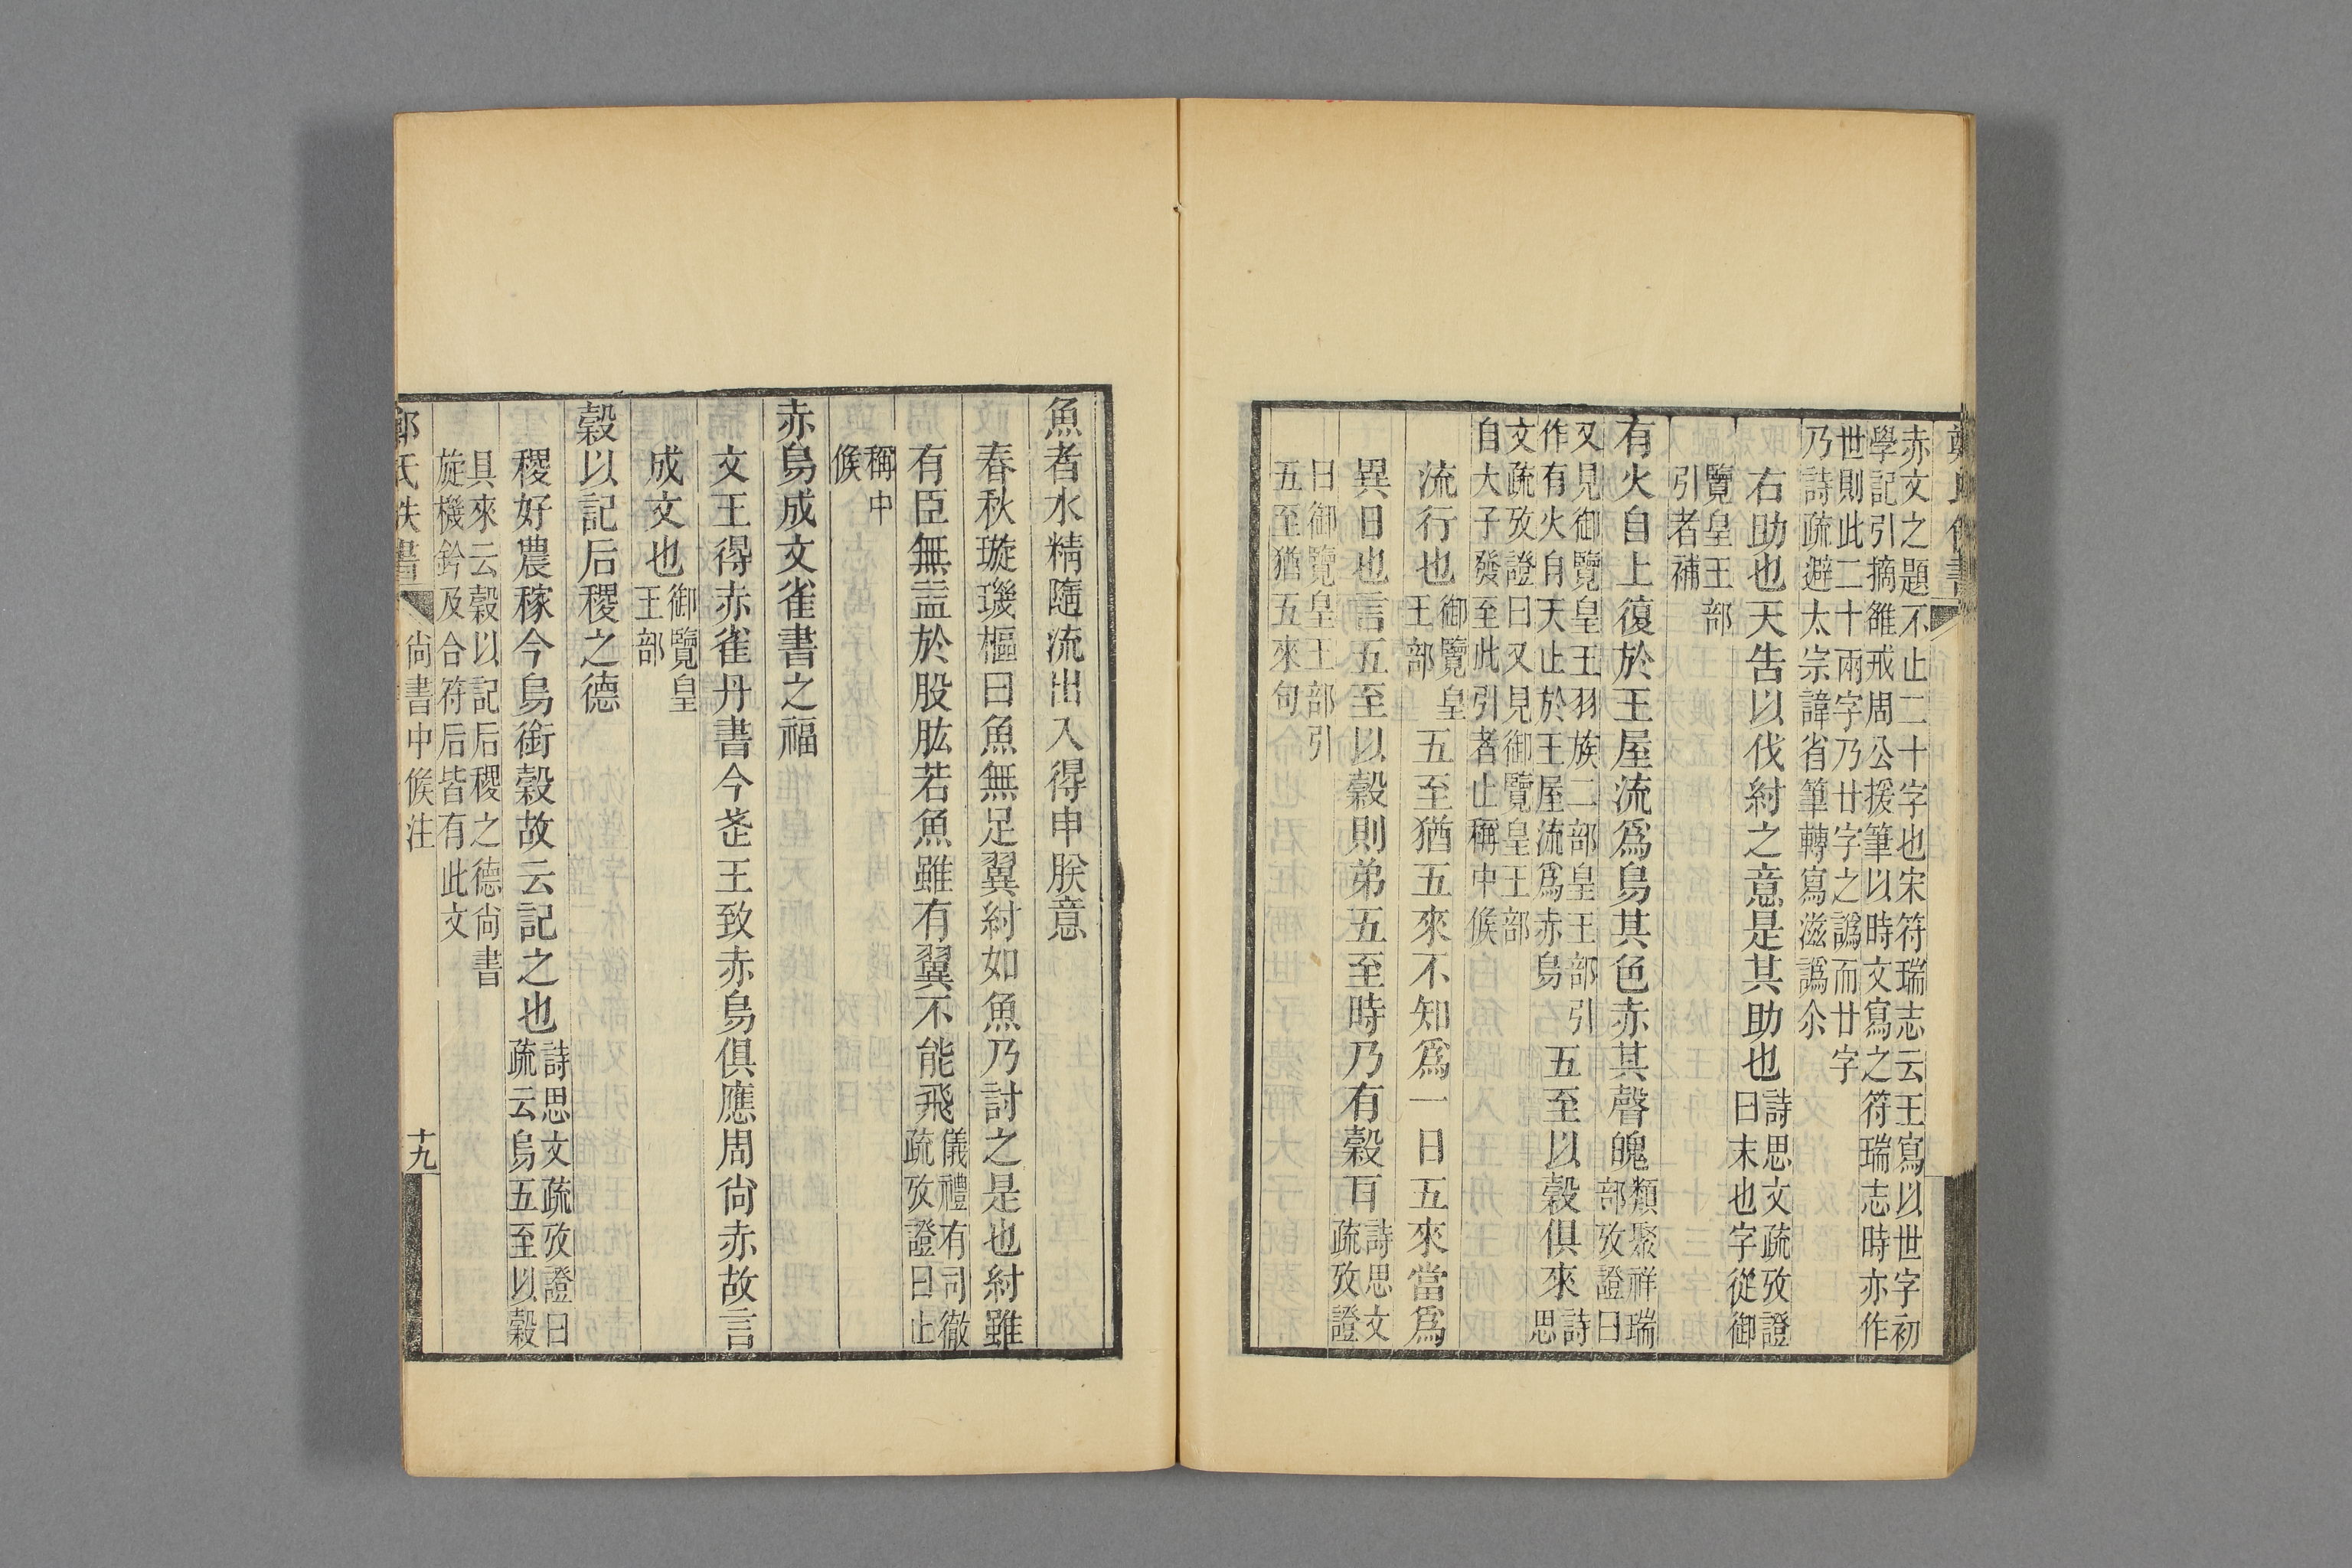 鄭氏佚書
赤文之題不止二十字也宋符瑞志云王寫以世字初
學記引摘雒戒周公援筆以時文寫之符瑞志時亦作
世則此二十兩字乃廿字之譌而廿字
乃詩疏避太宗諱省筆轉寫滋譌尒
右助也天告以伐紂之意是其助也詩思文疏攷證
曰末也字從御
覽皇王部
引者補
有火自上復於王屋流爲烏其色赤其聲魄類聚祥瑞
部攷證曰
又見御覽皇王羽族二部皇王部引
作有火自天止於王屋流爲赤烏
五至以穀俱來詩
思
文疏攷證曰又見御覽皇王部
自大子發至此引者止稱中候
流行也御覽皇
王部
五至猶五來不知爲一日五來當爲
異日也言五至以穀則弟五至時乃有穀百詩思文
疏攷證
曰御覽皇王部引
五至猶五來句
魚者水精隨流出入得申朕意
春秋璇璣樞曰魚無足翼紂如魚乃討之是也紂雖
有臣無益於股肱若魚雖有翼不能飛儀禮有司徹
疏攷證曰止
稱中
候
赤烏成文雀書之福
文王得赤雀丹書今武王致赤烏俱應周尚赤故言
成文也御覽皇
王部
穀以記后稷之德
稷好農稼今烏銜穀故云記之也詩思文疏攷證曰
疏云烏五至以穀
具來云穀以記后稷之德尚書
旋機鈐及合符后皆有此文
鄭氏佚書 尚書中候注 十九